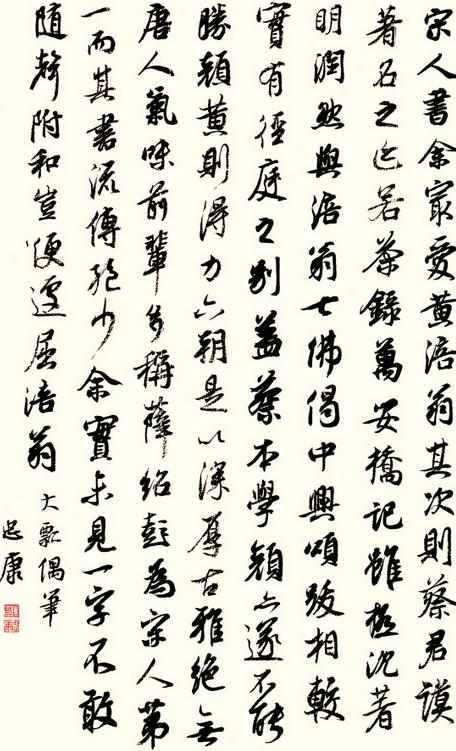 宋人書余最愛黃涪翁其次則蔡君謨
著名之迹若茶錄萬安橋記雖極沈著
明潤然與涪翁七佛偈中興頌跋相較
實有徑庭之別蓋蔡本學顏亦遂不能
勝顏黃則得力六朝是以深厚古雅絕無
唐人氣味前輩多稱薛紹彭為宋人第
一而其書流傳絕少余實未見一字不敢
隨聲附和豈便遽屈涪翁
大瓢偶筆
忠康